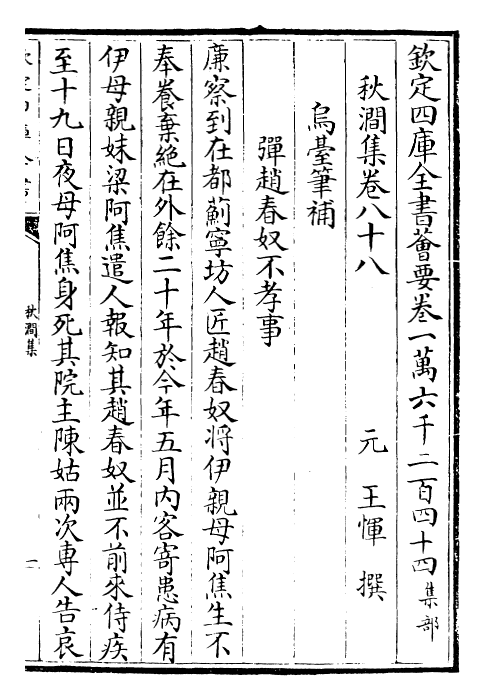 欽定四庫全書薈要卷一萬六千二百四十四集部
秋澗集卷八十八
元 王惲 撰
烏臺筆補
彈趙春奴不孝事
廉察到在都薊寧坊人匠趙春奴将伊親母阿焦生不
奉養棄絶在外餘二十年於今年五月内客寄患病有
伊母親妹梁阿焦遣人報知其趙春奴並不前來侍疾
至十九日夜母阿焦身死其院主陳姑兩次専人告哀
秋澗集
一